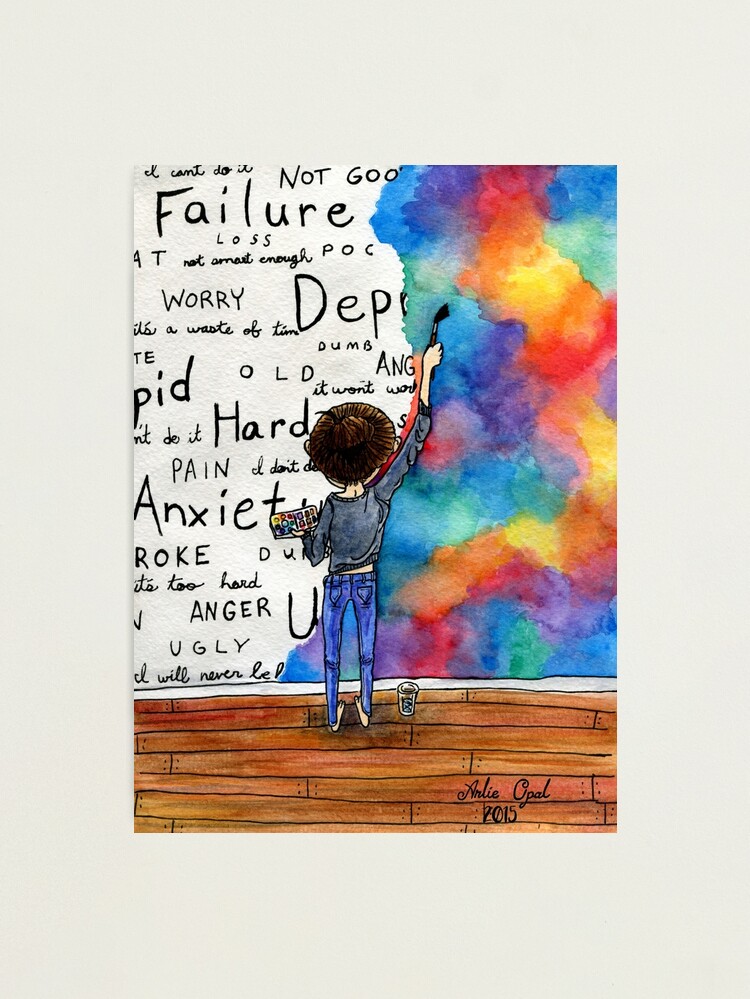 I cant do it
NOT GOO
Failure
LOSS
AT not smart enough POC
WORRY Dep
it's a waste of tim
DUMB
TE
OLD ANG
pid it wont wo
Hard s
n't do it
PAIN I don't d
Anxiet
ROKE DUMB
it's too hard
ANGER U
UGLY
I will never be
Arlie Opal
2015